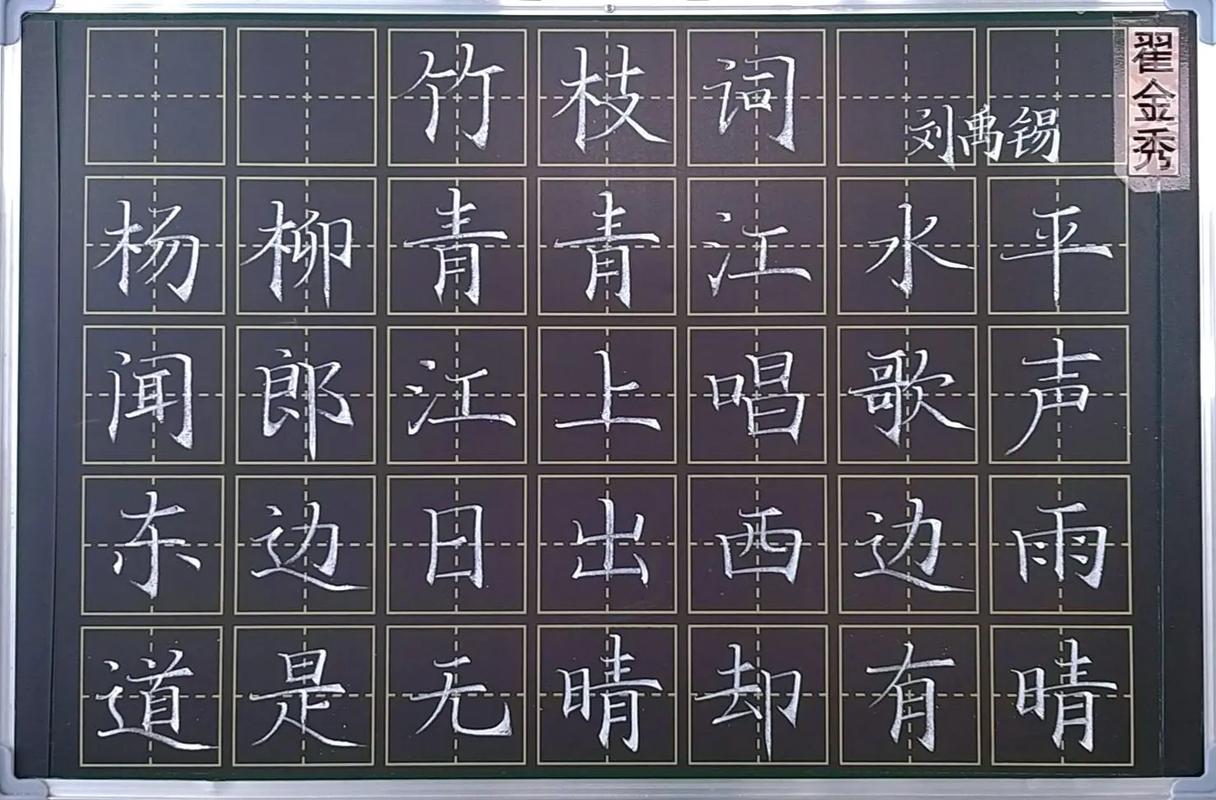 竹枝词
刘禹锡
翟金秀
杨柳青青江水平
闻郎江上唱歌声
东边日出西边雨
道是无晴却有晴